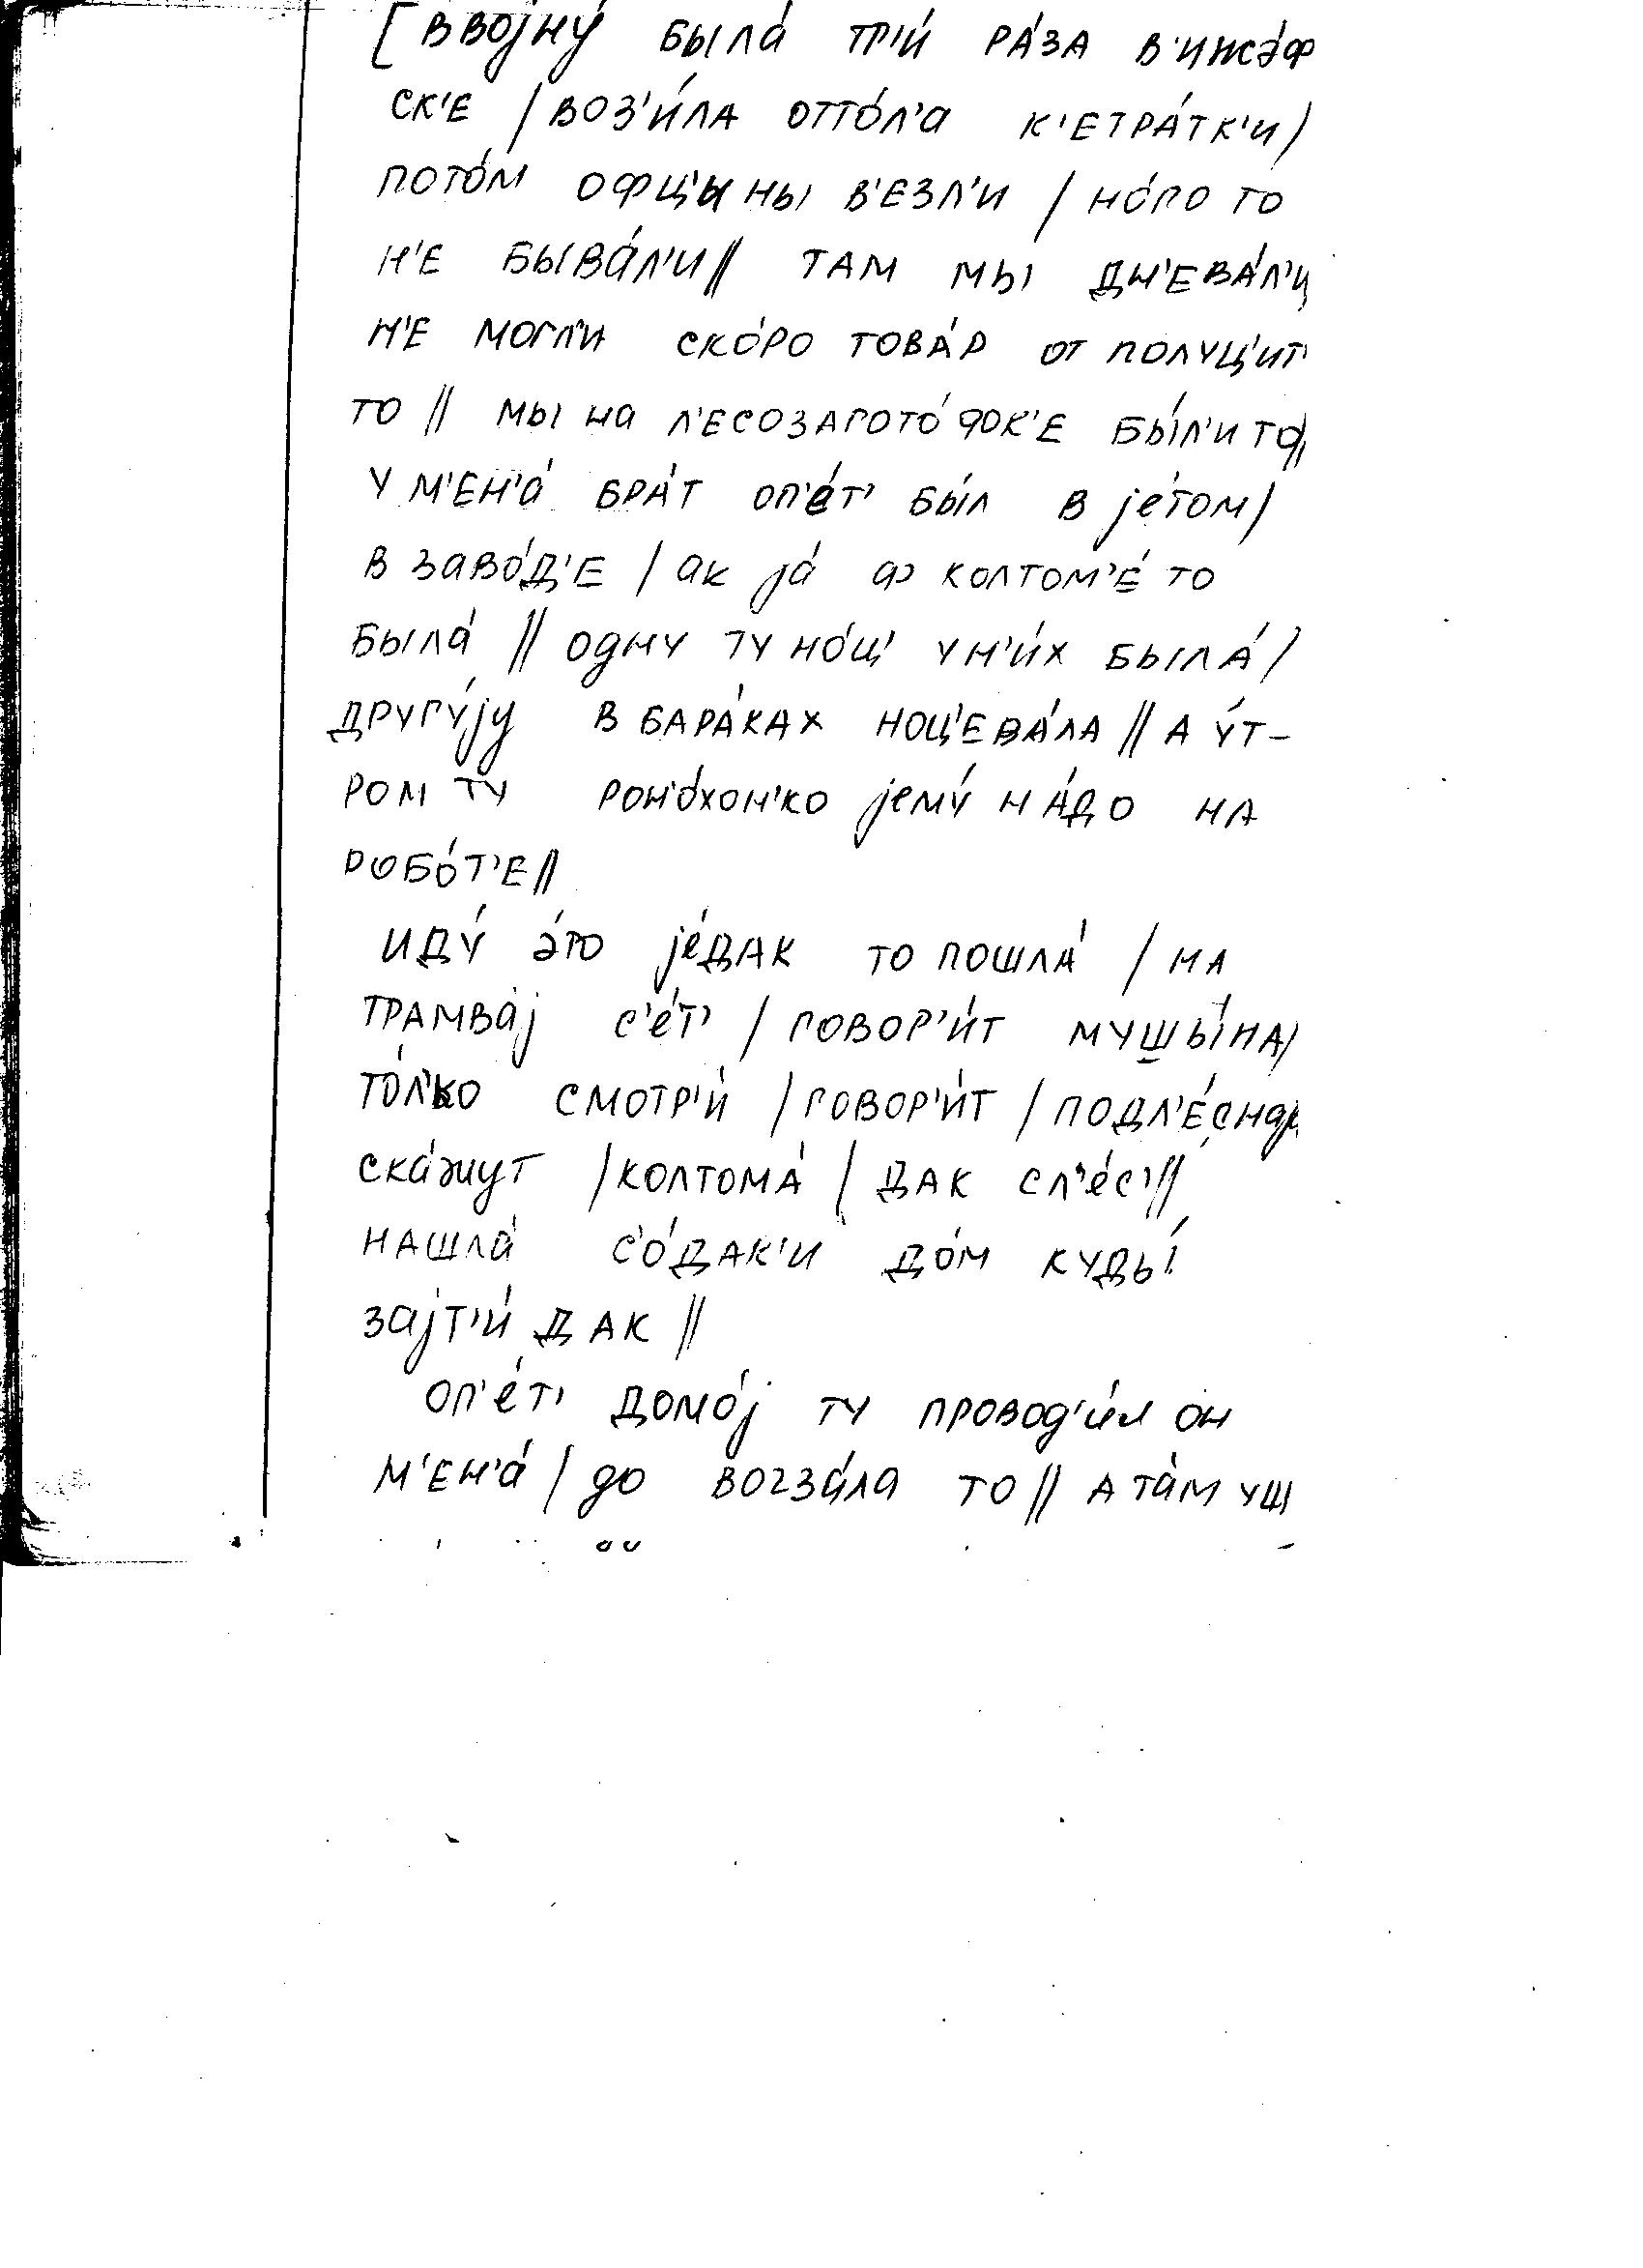 [ввоjну́ была́ тр'и́ ра́за в'ижэ́ф
ск'е / воз'и́ла отто́л'а к'етра́тк'и /
пото́м офц'ы́ны в'езл'и / но́го то
н'е быва́л'и // там мы дн'ева́л'и
н'е могл'и ско́ро това́р от полуц'ит'
то // мы на л'есозагото́фок'е бы́л'и то //
у м'ен'а́ бра́т оп'е́т' бы́л в jе́том /
в заво́д'е / ак jа́ ф колтом'е́ то
была́ // одну ту но́ц' у н'и́х была́ /
другу́jу в бара́ках ноц'ева́ла // а у́т-
ром ту рон'о́хон'ко jему́ на́до на
робо́т'е //
иду́ э́то jе́дак то пошла́ / на
трамва́j с'е́т' / говор'и́т мушы́на /
то́л'ко смотр'и́ / говор'и́т / подл'е́снаjа
ска́жут / колтома́ / дак сл'е́с' //
нашла́ с'о́дак'и до́м куды́
заjт'и́ дак //
оп'е́т' домо́j ту провод'и́л он
м'ен'а́ / до вогза́ла то // а та́м уш